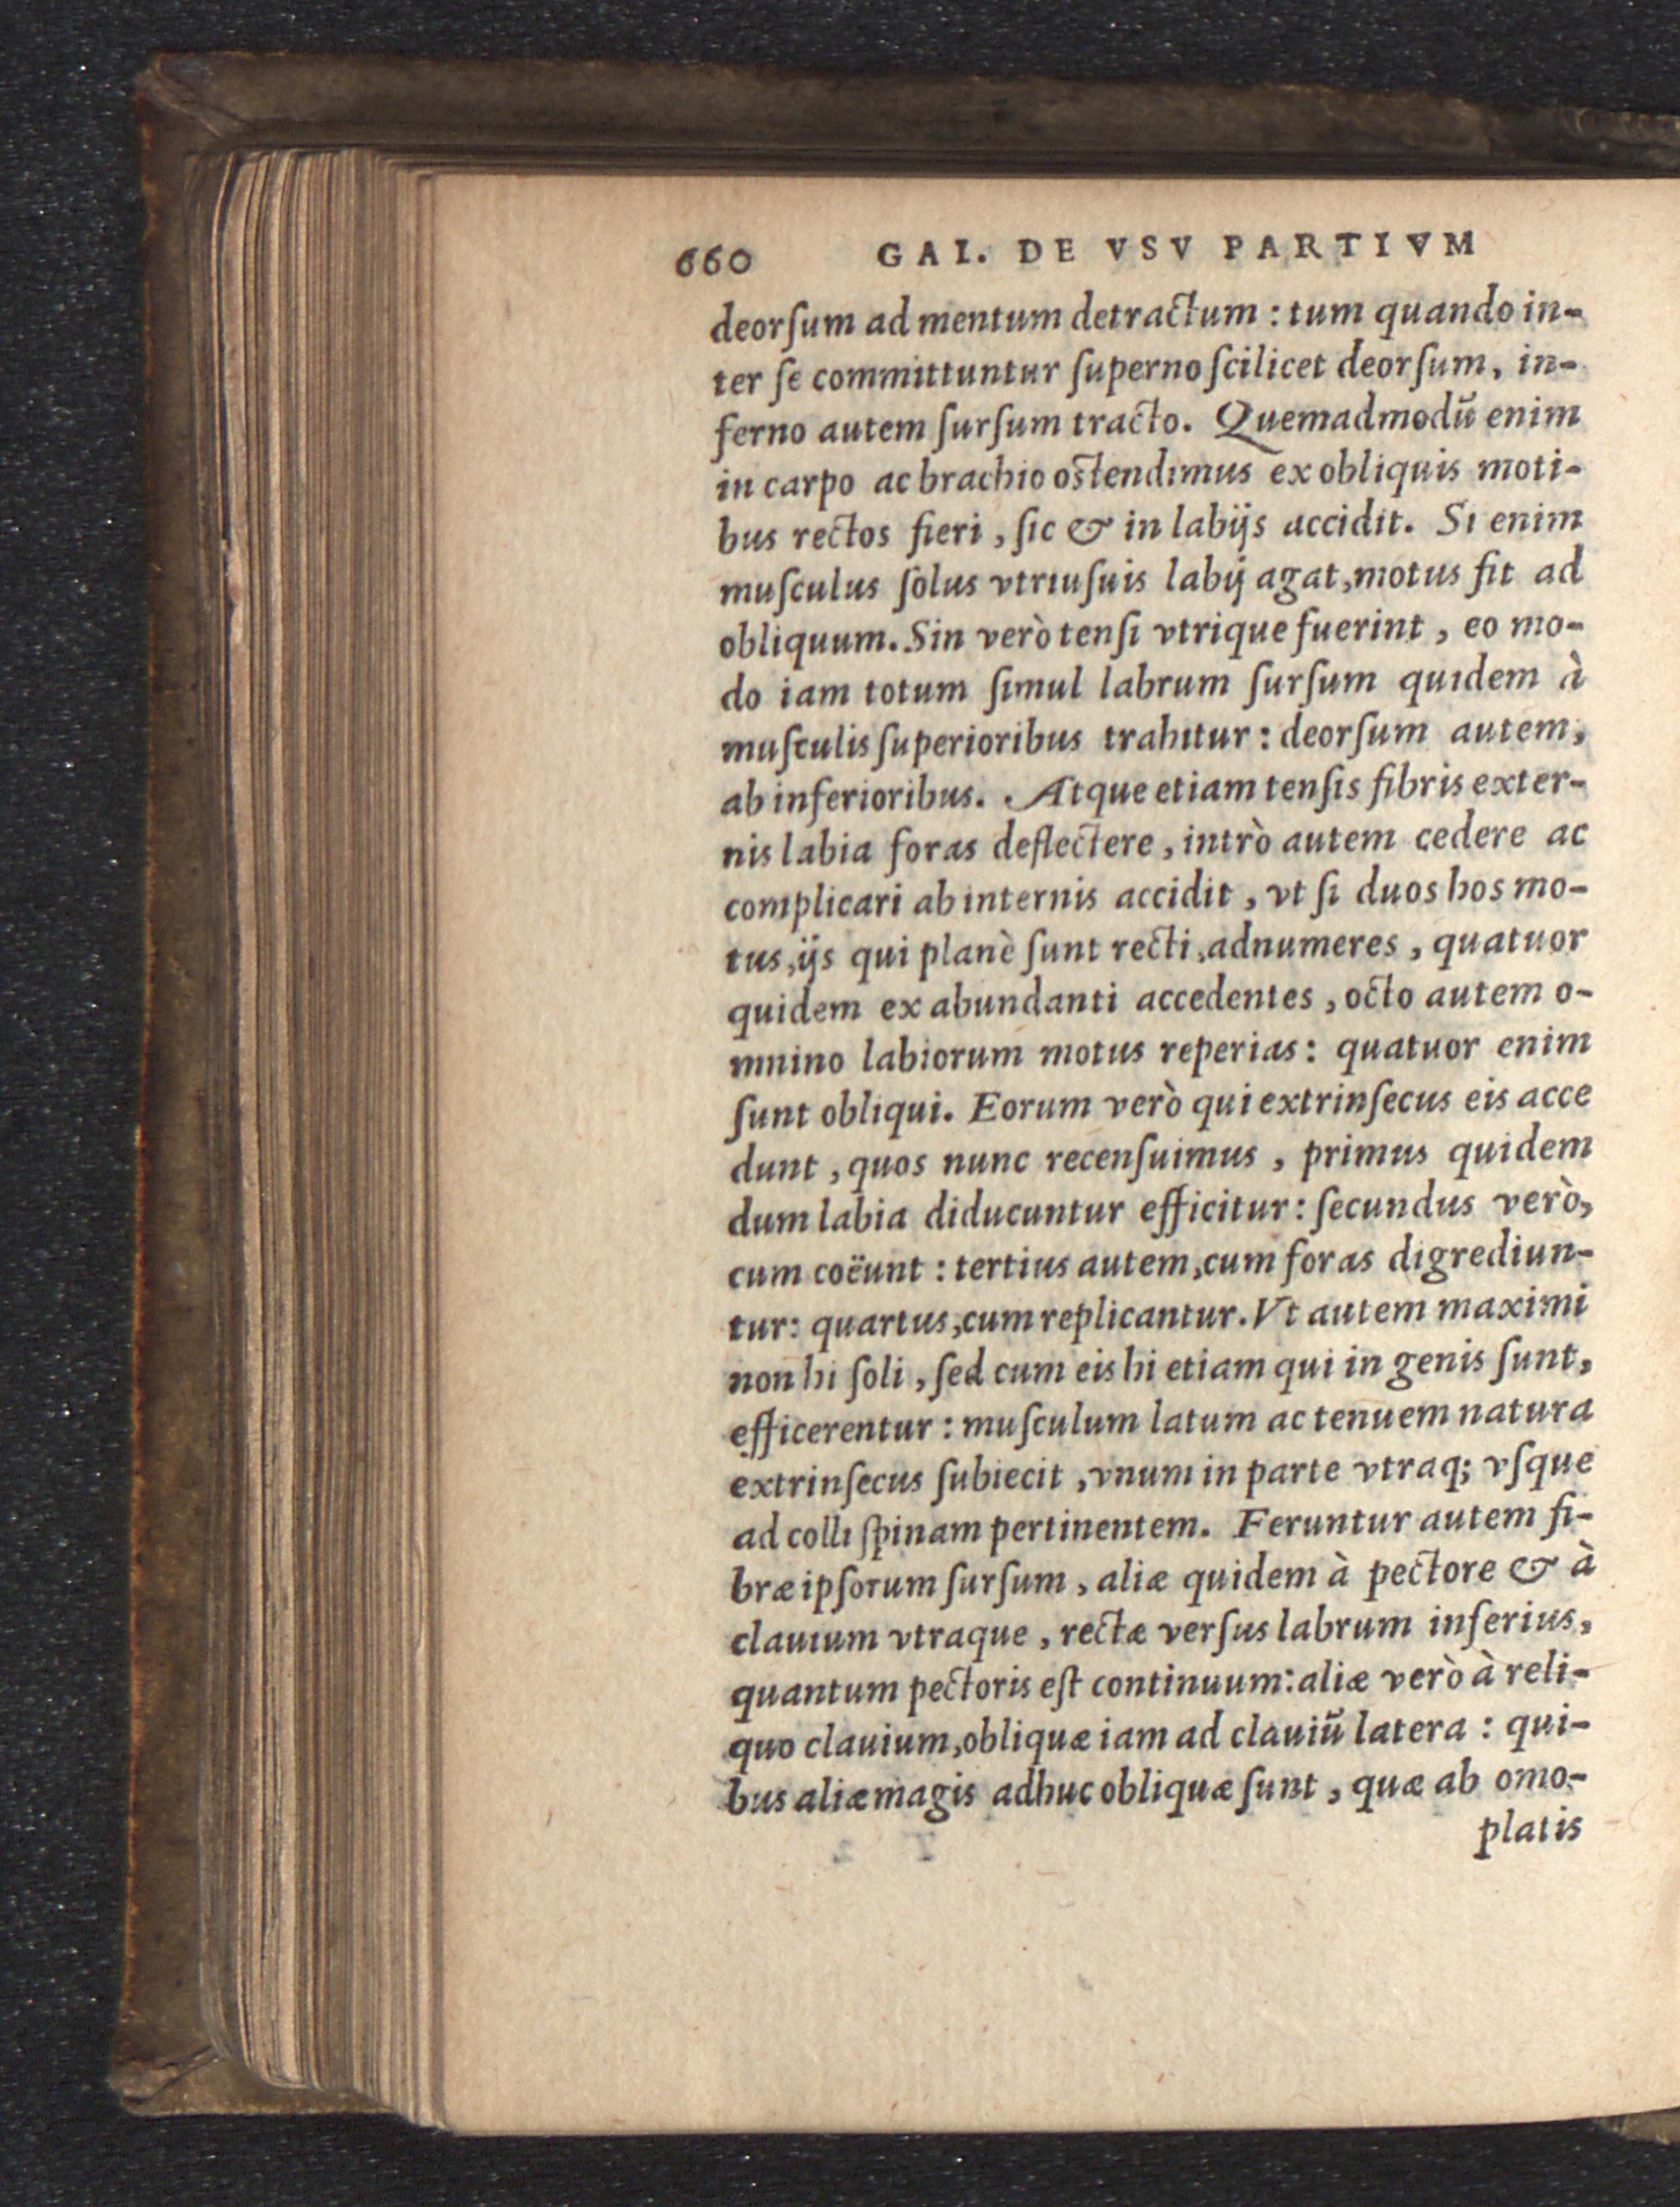 660 GAL. DE VSV PARTIVM
deorſum ad mentum detractum : tum quando in-
ter ſe committuntur ſuperno ſcilicet deorſum, in-
ferno autem ſurſum tracto. Quemadmodū enim
in carpo ac brachio ostendimus ex obliquis moti-
bus rectos fieri , ſic & in labijs accidit. Si enim
muſculus ſolus vtriuſuis labij agat, motus fit ad
obliquum. Sin verò tenſi vtrique fuerint , eo mo-
do iam totum ſimul labrum ſurſum quidem à
muſculis ſuperioribus trahitur : deorſum autem,
ab inferioribus. Atque etiam tenſis fibris exter-
nis labia foras deflectere , intrò autem cedere ac
complicari ab internis accidit , vt ſi duos hos mo-
tus, ijs qui planè ſunt recti, adnumeres , quatuor
quidem ex abundanti accedentes , octo autem o-
mnino labiorum motus reperias : quatuor enim
ſunt obliqui. Eorum verò qui extrinſecus eis acce
dunt , quos nunc recenſuimus , primus quidem
dum labia diducuntur efficitur : ſecundus verò,
cum coëunt : tertius autem, cum foras digrediun-
tur: quartus, cum replicantur. Vt autem maximi
non hi ſoli , ſed cum eis hi etiam qui in genis ſunt,
efficerentur : muſculum latum ac tenuem natura
extrinſecus ſubiecit , vnum in parte vtraq; vſque
ad colli ſpinam pertinentem. Feruntur autem fi-
bræ ipſorum ſurſum , aliæ quidem à pectore & à
clauium vtraque , rectæ verſus labrum inferius,
quantum pectoris eſt continuum: aliæ verò à reli-
quo clauium, obliquæ iam ad clauiū latera : qui-
bus aliæ magis adhuc obliquæ ſunt , quæ ab omo-
platis